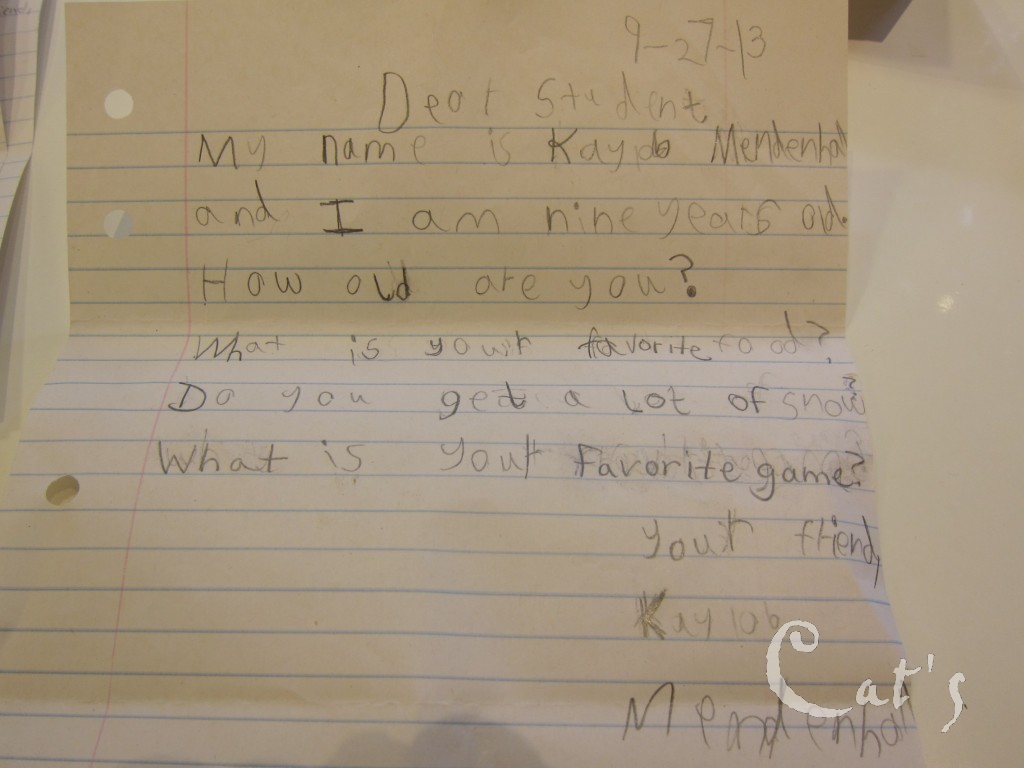 9-27-13
Dear Student
My name is Kaylob Mendenhall
and I am nine years old.
How old are you?
What is your favorite food?
Do you get a lot of snow?
What is your favorite game?
your friend,
Kaylob
Mendenhall
Cat's